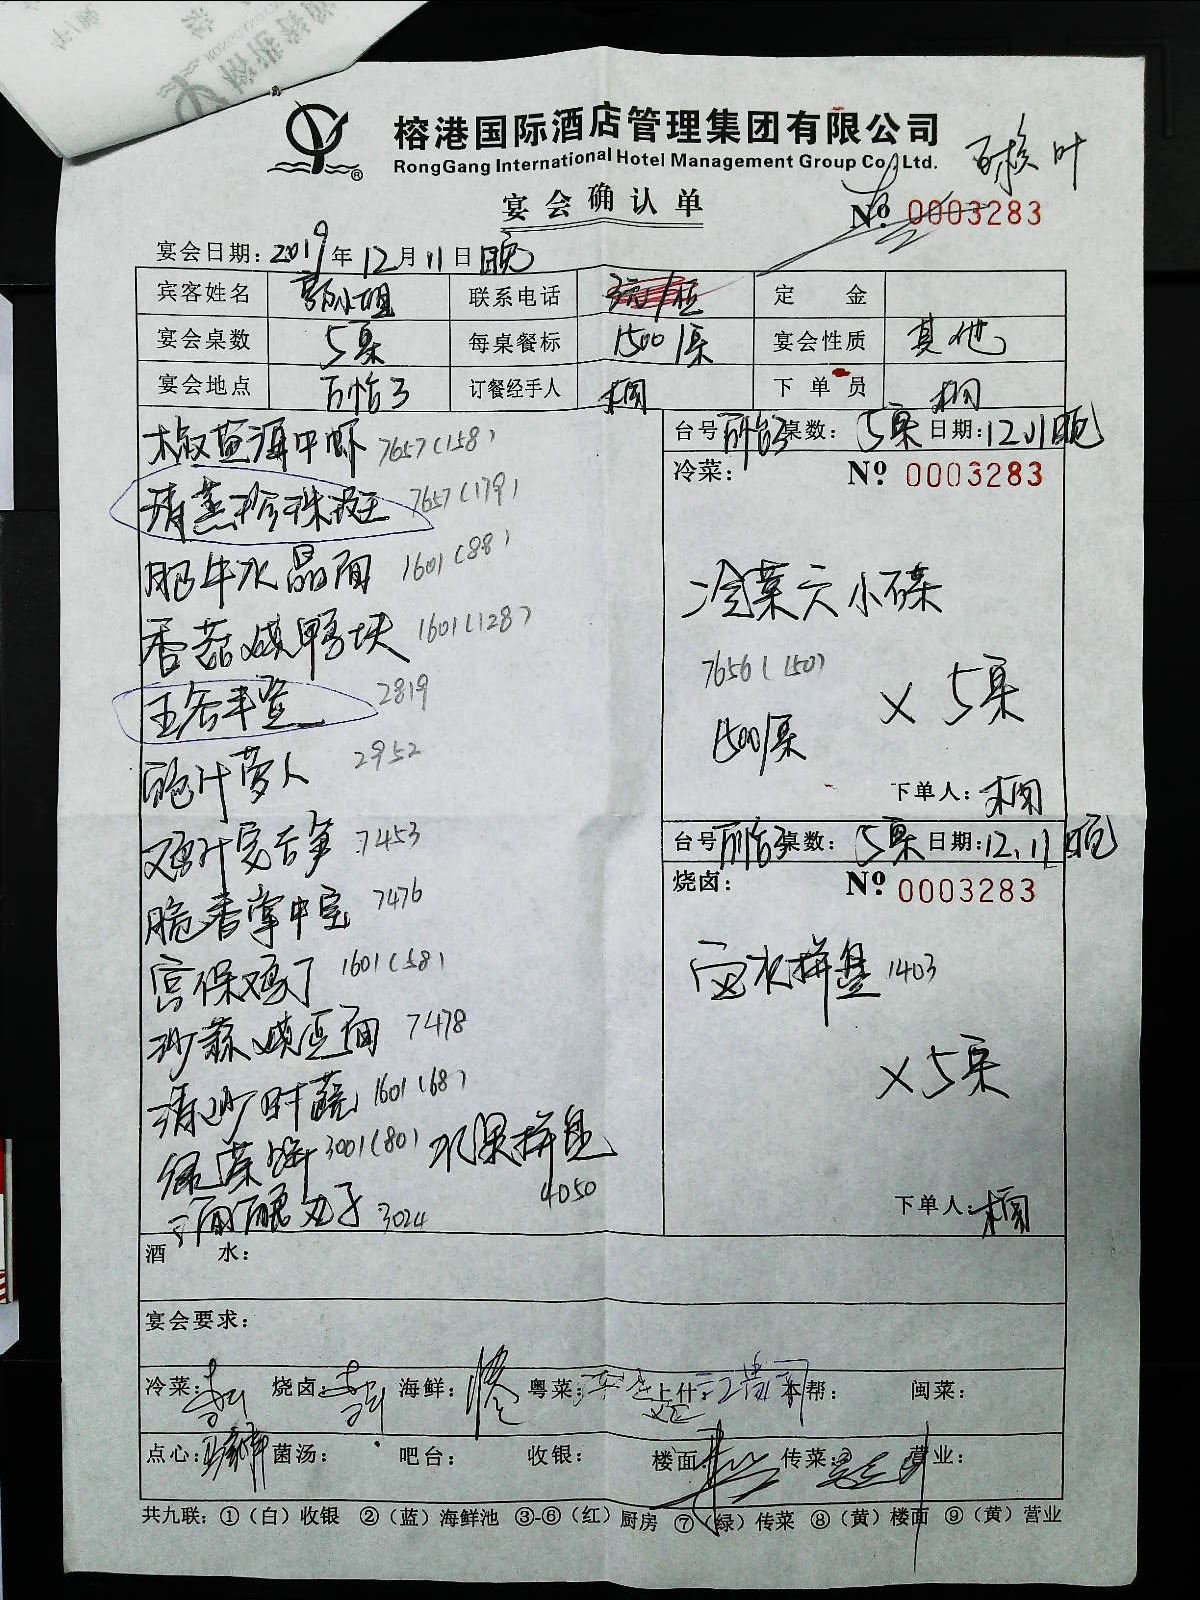 榕港国际酒店管理集团有限公司
RongGang International Hotel Management Group Co., Ltd.
宴会确认单
№ 0003283
宴会日期: 2019年12月11日晚
宾客姓名 郭小姐 联系电话 定金
宴会桌数 5桌 每桌餐标 1500/桌 宴会性质 其他
宴会地点 订餐经手人 下单员
椒盐海中虾 7657(158)
清蒸珍珠斑 7657(179)
肥牛水晶面 1601(88)
香菇焖鸭块 1601(128)
2819
鲍汁萝人 2952
鸡汁安吉笋 7453
脆香掌中宝 7476
宫保鸡丁 1601(58)
7478
清炒时蔬 1601(68)
绿茶饼 3001(80) 水果拼盘 4050
酒酿丸子 3024
台号 桌数: 5桌 日期: 12.11晚
冷菜: № 0003283
冷菜六小碟
7656(150)
1500/桌
× 5桌
下单人:
台号 桌数: 5桌 日期: 12.11晚
烧卤: № 0003283
卤水拼盘 1403
× 5桌
下单人:
酒水:
宴会要求:
冷菜: 烧卤: 海鲜: 粤菜: 上什: 本帮: 闽菜:
点心: 菌汤: 吧台: 收银: 楼面: 传菜: 营业:
共九联: ①(白)收银 ②(蓝)海鲜池 ③-⑥(红)厨房 ⑦(绿)传菜 ⑧(黄)楼面 ⑨(黄)营业